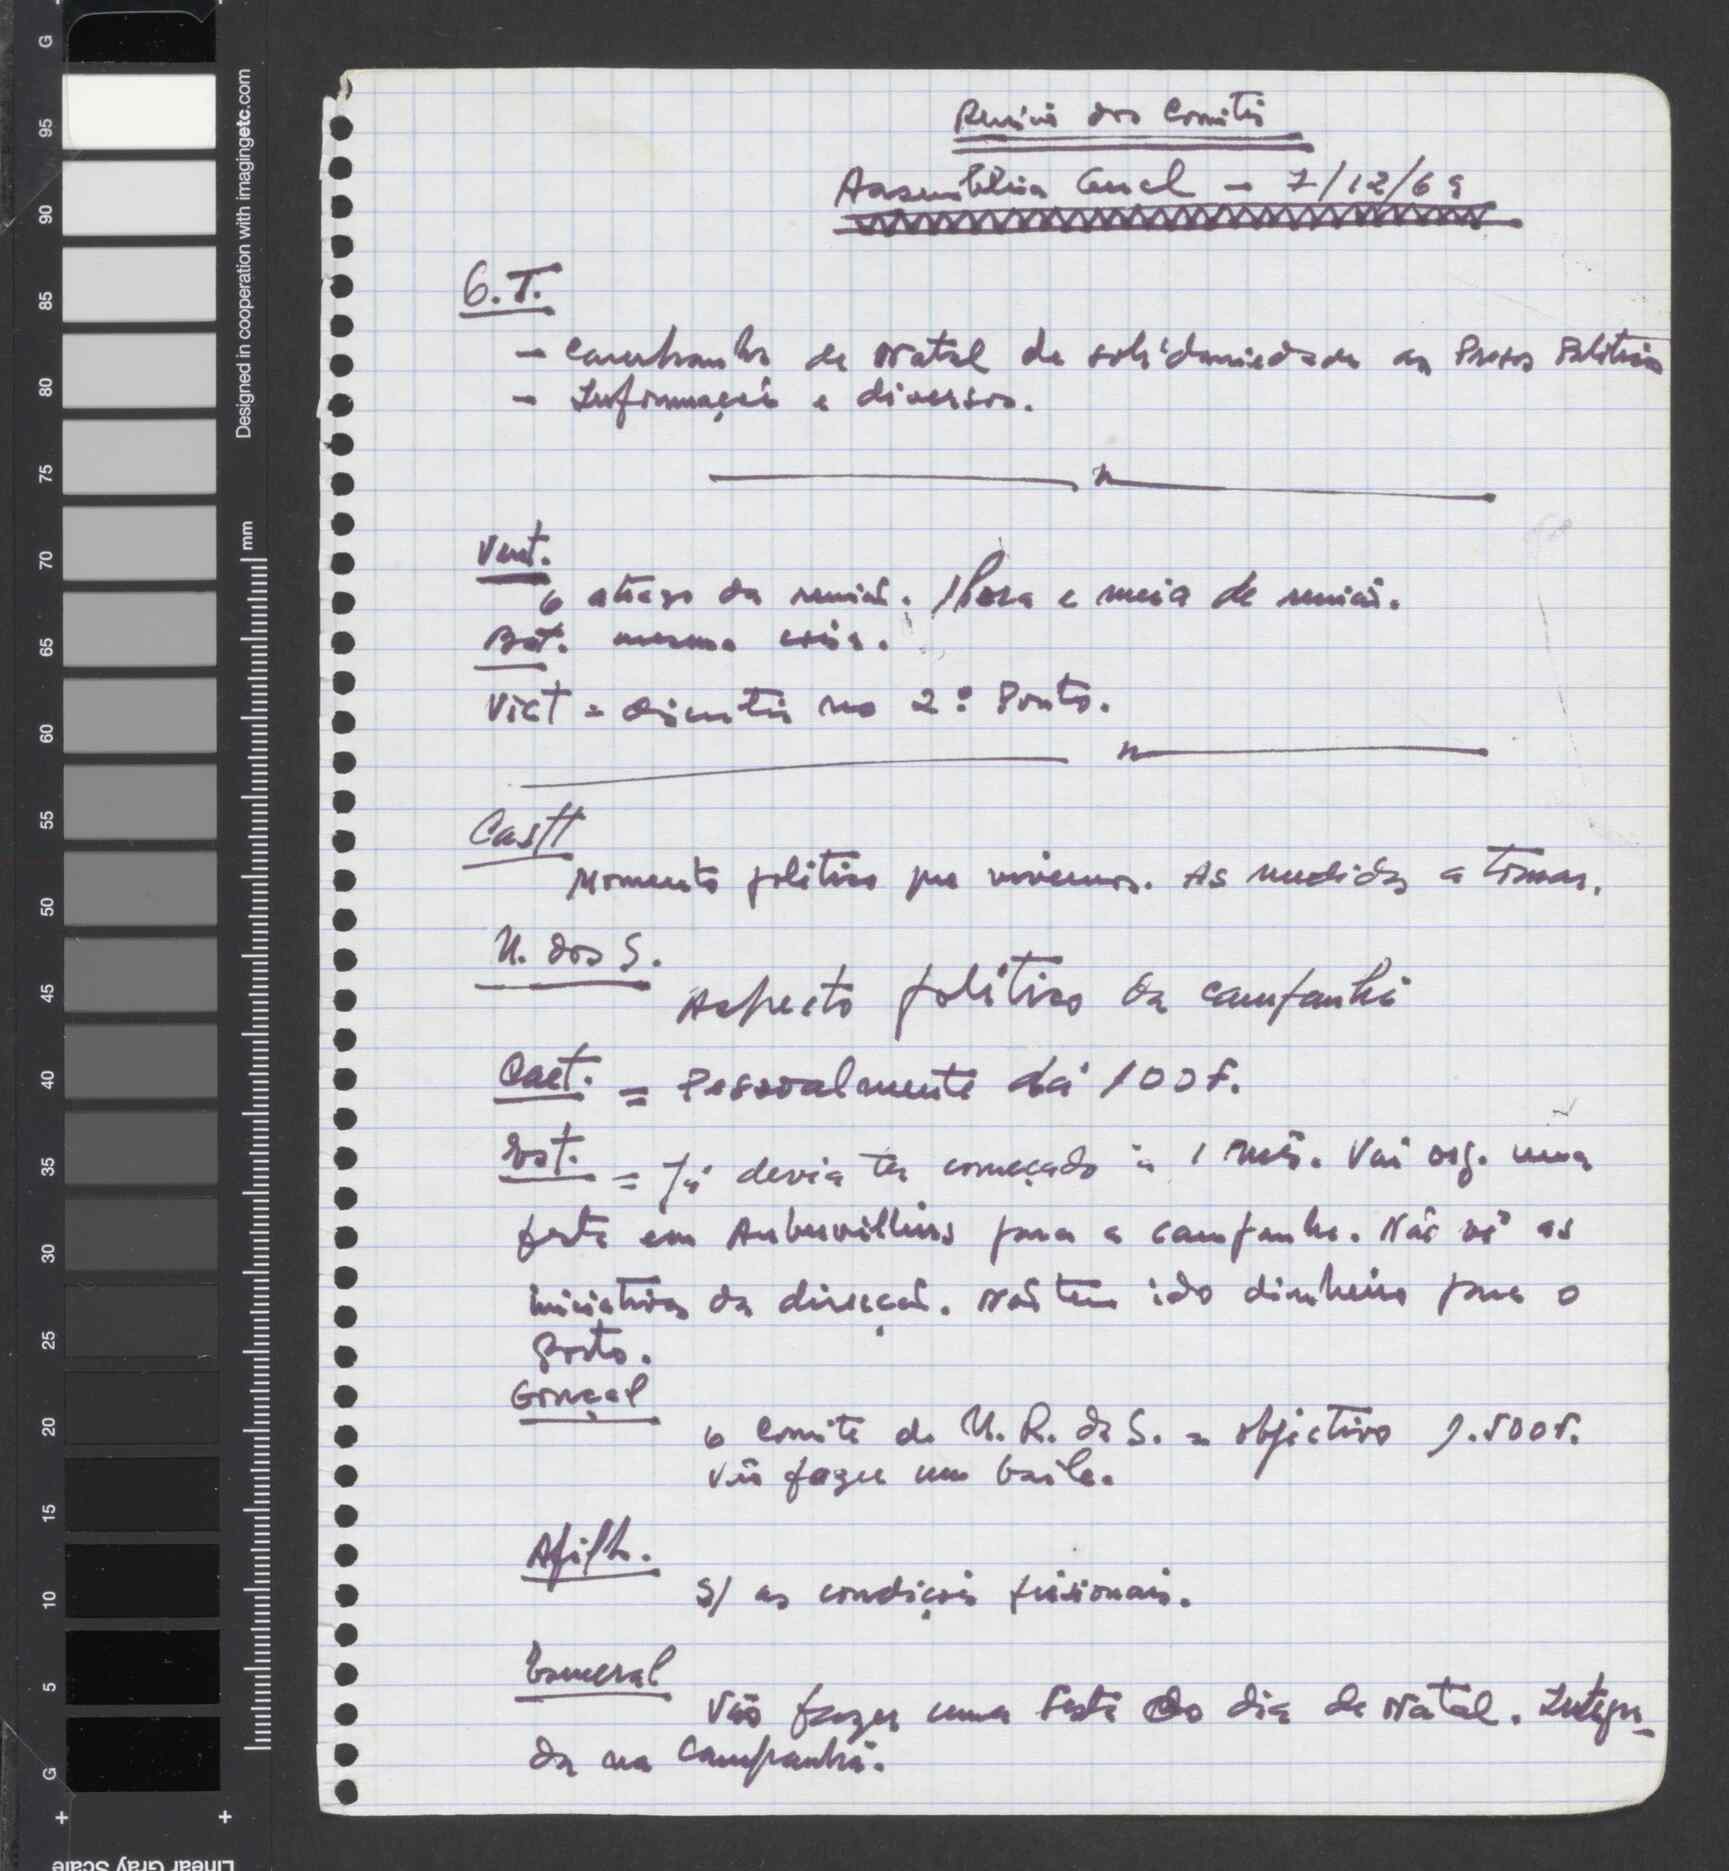 Reunião dos Comités
Assembleia Geral - 7/12/69
O.T.
- Campanha de Natal de solidariedade aos Presos Políticos
- Informação e diversos.
Vent.
O atraso da reunião. 1 hora e meia de reunião.
Bat. mesma coisa.
Vict = discutir no 2º Ponto.
Cast
Momento político que vivemos. As medidas a tomar.
U. dos S.
Aspecto político da campanha
Caet. = Pessoalmente dá 100 F.
Est. = Já devia ter começado à 1 mês. Vai org. uma
festa em Aubervilliers para a campanha. Não vê as
iniciativas da direcção. Não tem ido dinheiro para o
Porto.
Gonçal
O Comité de U. R. da S. = objectivo 1.500 F.
Vão fazer um baile.
Afilh.
S/ as condições prisionais.
Esmeral
Vão fazer uma festa do dia de Natal. Integra-
da na Campanha.
G
95
90
85
80
75
70
65
60
55
50
45
40
35
30
25
20
15
10
5
G
Designed in cooperation with imagingetc.com
mm
Linear Gray Scale